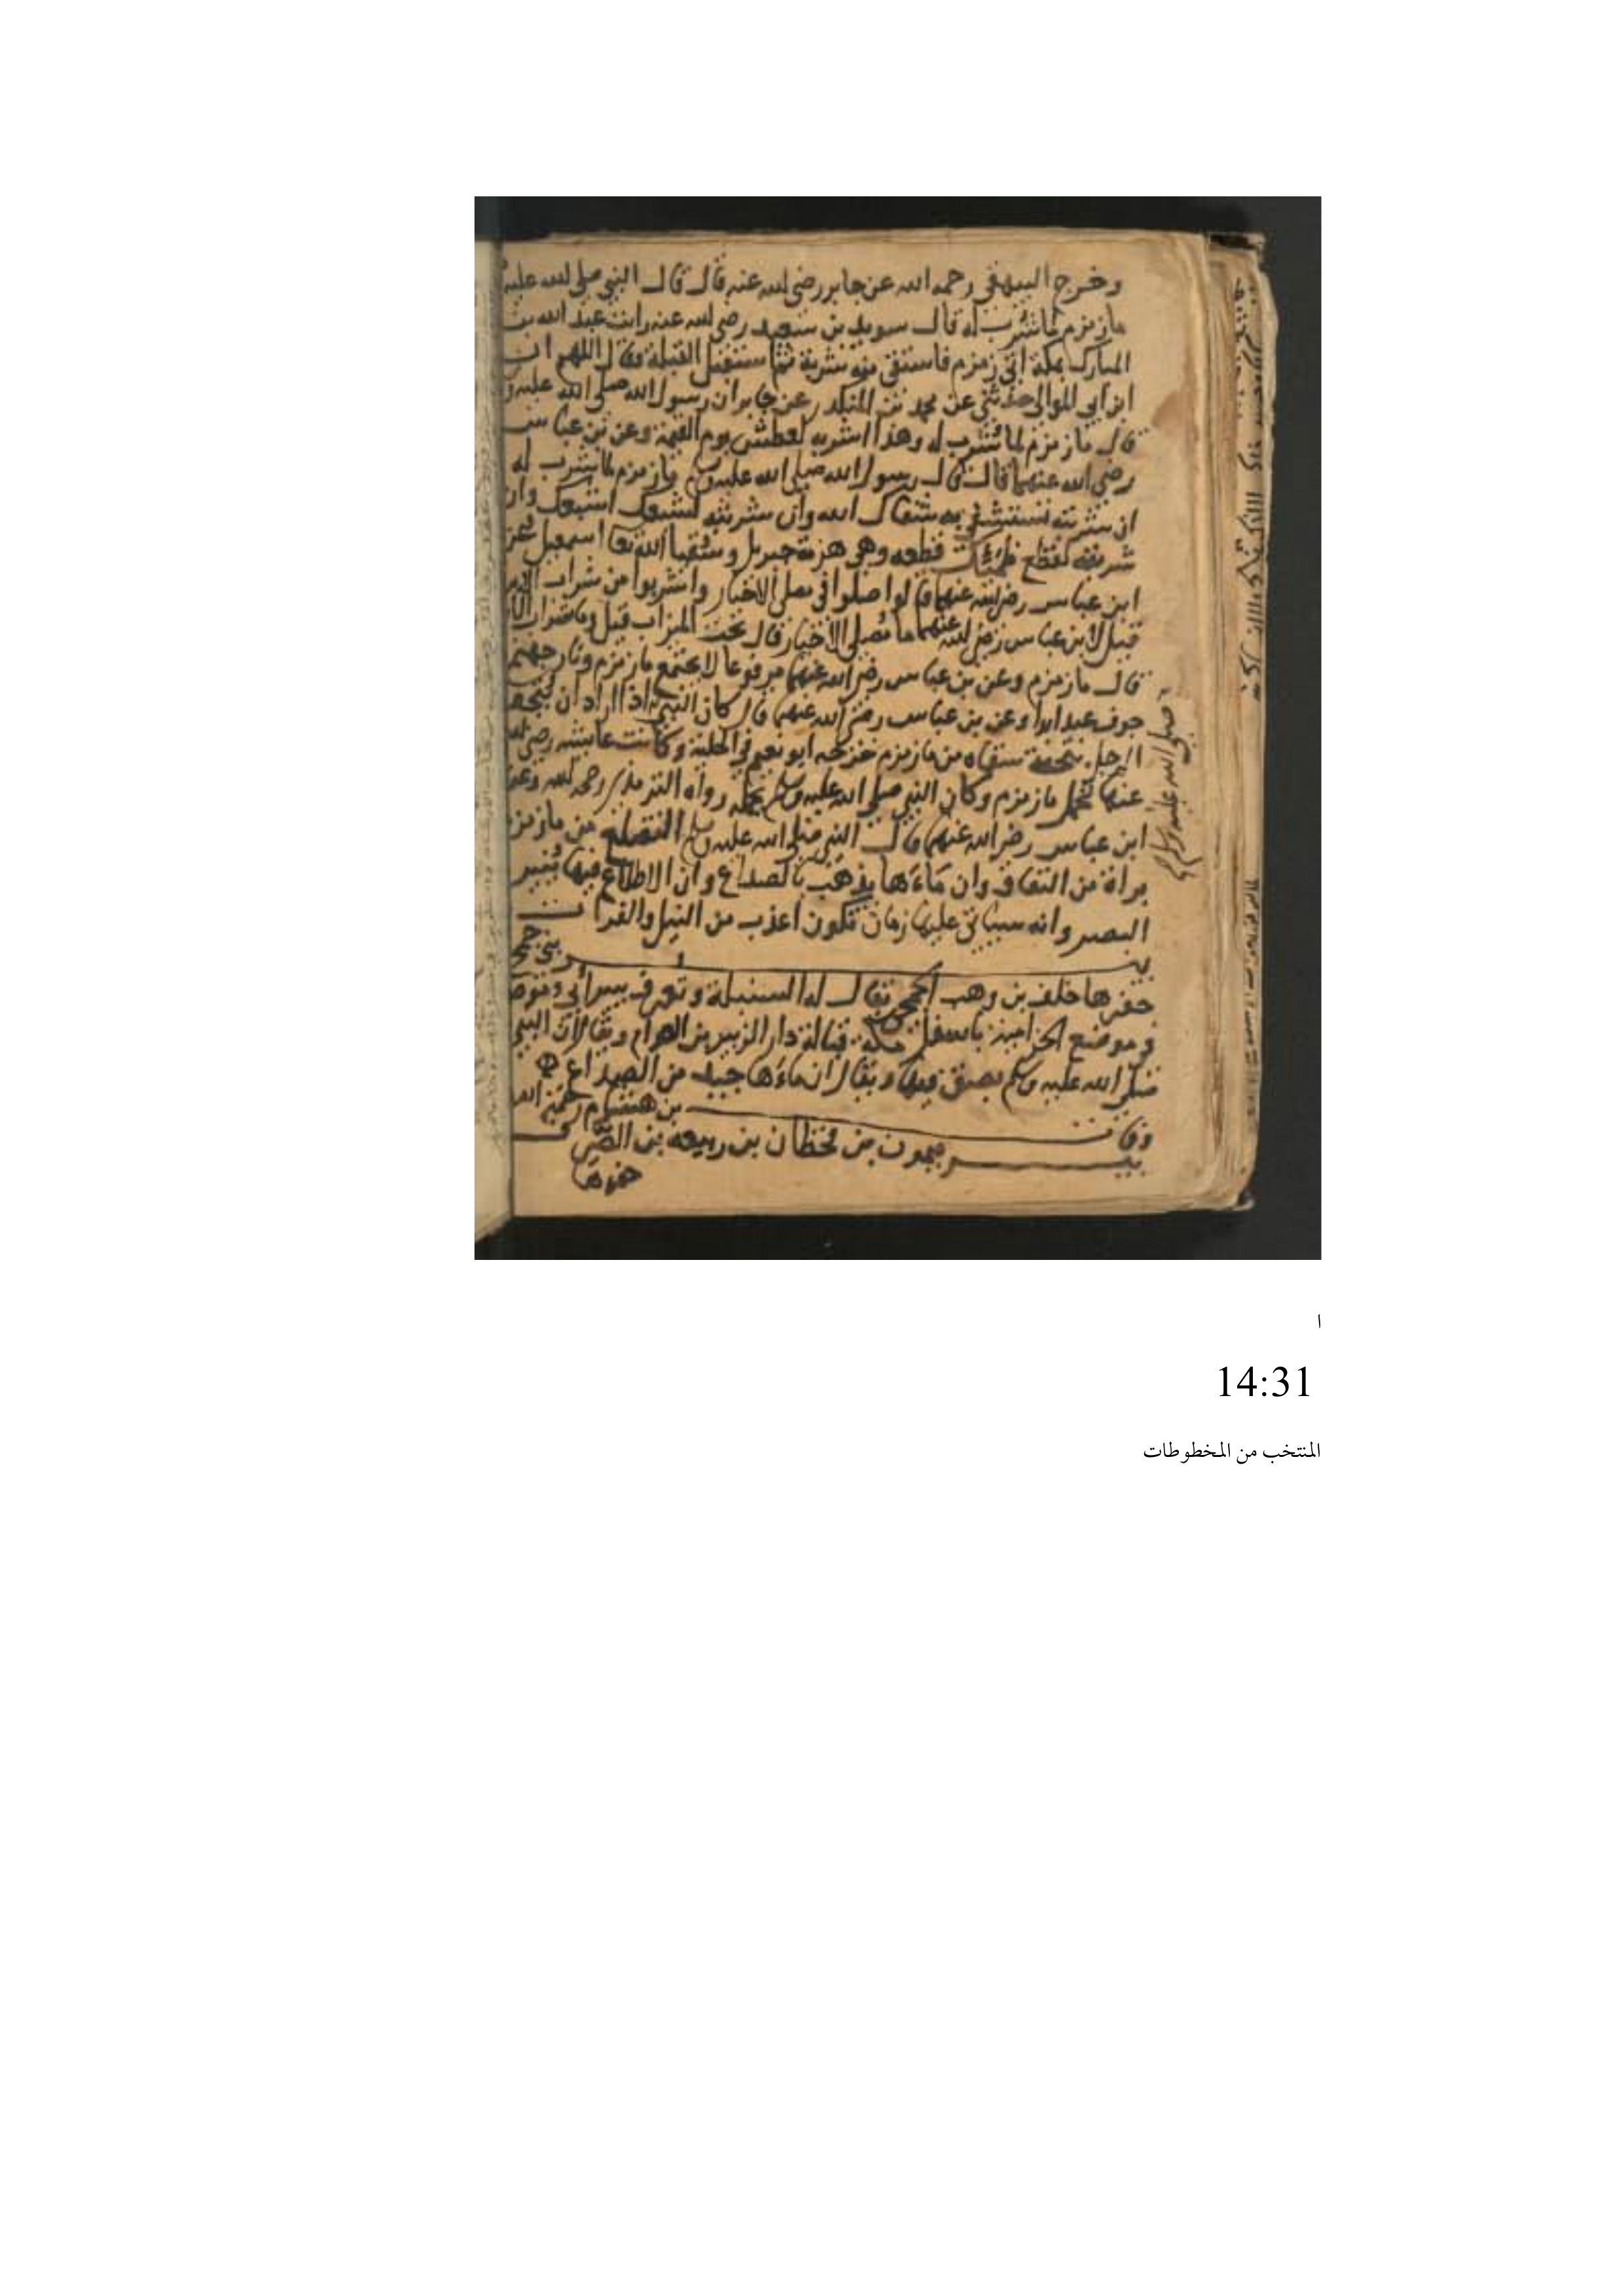 وخرج البيهقي رحمه الله عن جابر رضي الله عنه قال قال النبي صلى الله عليه
ماء زمزم لما شرب له قال سويد بن سعيد رضي الله عنه رايت عبد الله بن
المبارك بمكة اتى زمزم فاستقى منه شربة ثم استقبل القبلة وقال اللهم ان
ابن ابي الموالي حدثني عن محمد بن المنكدر عن جابر ان رسول الله صلى الله عليه و
قال ماء زمزم لما شرب له وهذا اشربه لعطش يوم القيمة وعن بن عباس
رضي الله عنهما قال قال رسول الله صلى الله عليه وسلم ماء زمزم لما شرب له
ان شربته تستشفي به شفاك الله وان شربته لشبعك اشبعك وان
شربته لقطع ظمئك قطعه وهي هزمة جبريل وسقيا الله اسمعيل عن
ابن عباس رضي الله عنهما قال صلوا في مصلى الاخيار واشربوا من شراب
قيل لابن عباس رضي الله عنهما ما مصلى الاخيار قال تحت الميزاب قيل وما شراب
قال ماء زمزم وعن بن عباس رضي الله عنهما مرفوعا لا يجتمع ماء زمزم ونار جهنم
جوف عبد ابدا وعن بن عباس رضي الله عنهما قال كان النبي اذا اراد ان يتحف
الرجل بتحفة سقاه من ماء زمزم خرجه ابو نعيم في الحلية وكانت عايشه رضي الله
عنها تحمل ماء زمزم وكان النبي صلى الله عليه وسلم يحمله رواه الترمذي رحمه الله وعن
ابن عباس رضي الله عنهما قال النبي صلى الله عليه وسلم التضلع من ماء زمزم
براة من النفاق وان ماءها يذهب بالصداع وان الاطلاع فيها ينير
البصر وانه سياتي عليها زمان تكون اعذب من النيل والفرات
بير بني جمح
حفرها خلف بن وهب الجمحي يقال لها السنبلة وتعرف ببير ابي
وموضع باسفل مكة قبالة دار الزبير بن العوام ويقال ان النبي
صلى الله عليه وسلم بصق فيها ويقال ان ماءها جيد من الصداع
وقال بن هشام رحمة الله
بير ميمون بن قحطان بن ربيعه بن
حفرها
صلى الله عليه وسلم
ا
14:31
المنتخب من المخطوطات